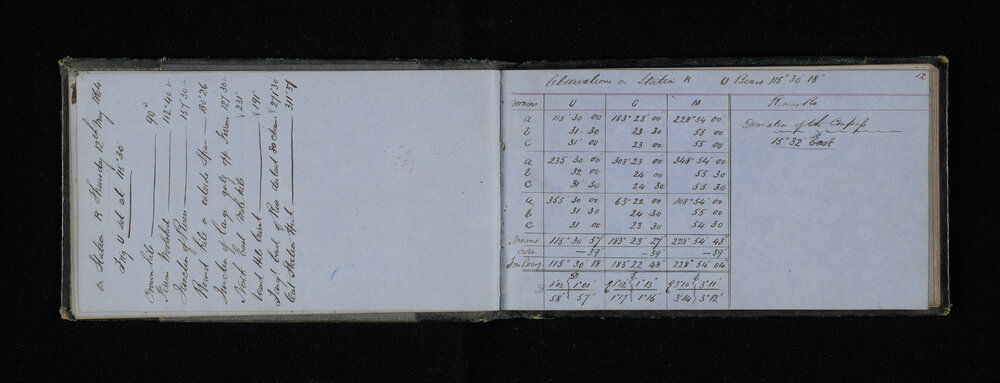 on Station R Thursday 12th May 1864.
Trig U set at 115°30'
Crown hill 90°
112°40'
Junction of River 157°30'
Round hill 180°26
Junction of large gully opp. Farm 127°30
North East Mile hill 231°
191°
distant 30 chains 271°30
East Station Hut 311°37
Observations on Station R U Bears 115° 30' 18" 12
Verniers U G M Remarks
a 115 30 00 183° 23' 00 228° 54 00
b 31 30 23 30 55 00
c 31' 00 23 00 55 00
Deviation of the Compass
15° 32' East
a 235 30 00 303° 23 00 348° 54' 00
b 32 00 24 00 55 30
c 31 30 24 30 55 30
a 355 30 00 63° 22 00 108° 54' 00
b 31 30 24 30 55 00
c 31 00 23 00 54 30
Means 115° 30 57" 183° 23' 27" 228° 54' 43"
corr. —39 —39 —39"
True Bearg. 115° 30 18" 183° 22 48" 228° 54' 04"
1°02 1°01' 1°12' 1°13' 3°10 3°11'
58' 57' 1°17 1°16' 3°14 3°12'